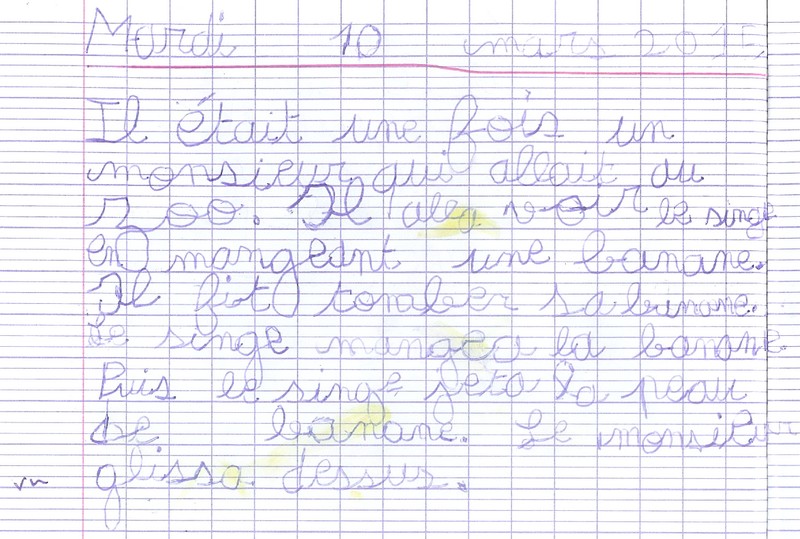 Mardi 10 mars 2015
Il était une fois un
monsieur qui allait au
zoo. Il alla voir le singe
en mangeant une banane.
Il fit tomber sa banane.
Le singe mangea la banane.
Puis le singe jeta la peau
de banane. Le monsieur
glissa dessus.
vu